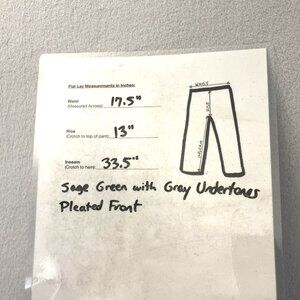 Flat Lay Measurements in Inches:
Waist 17.5"
(Measured Across)
Rise 13"
(Crotch to top of pant)
Inseam 33.5"
(Crotch to hem)
WAIST
RISE
INSEAM
Sage Green with Gray Undertones
Pleated Front